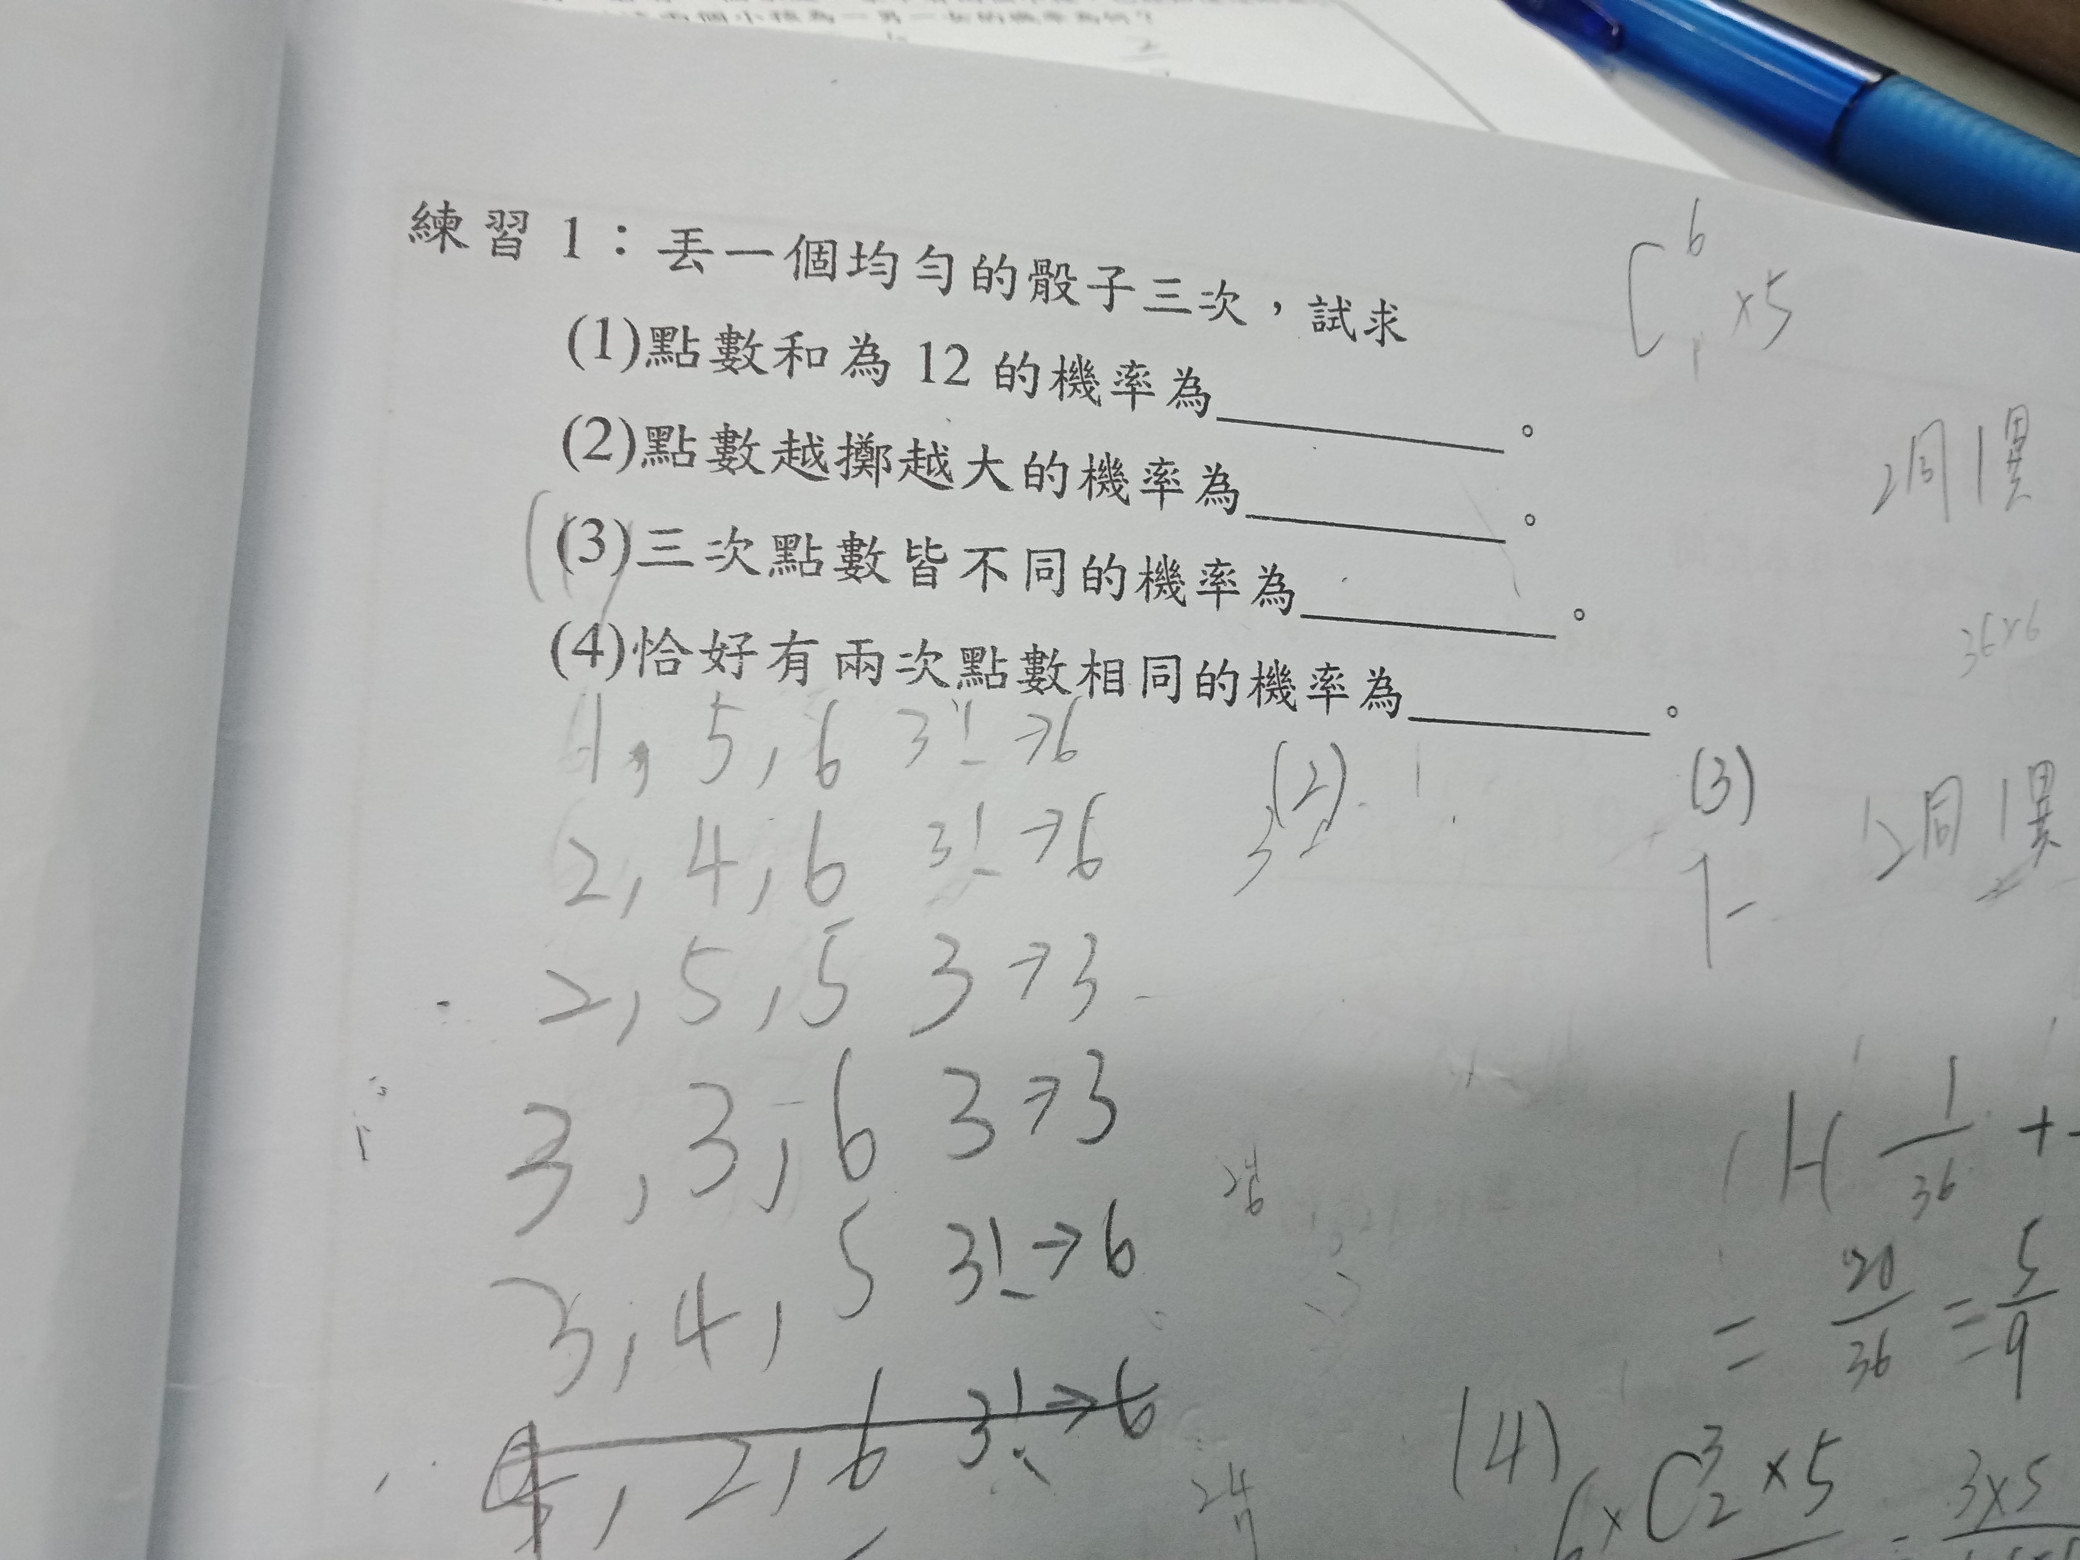 練習 1：丟一個均勻的骰子三次，試求
(1)點數和為 12 的機率為________。
(2)點數越擲越大的機率為________。
(3)三次點數皆不同的機率為________。
(4)恰好有兩次點數相同的機率為________。
C 6 1 ×5
2同1異
36×6
1, 5, 6 3! →6
2, 4, 6 3! →6
2, 5, 5 3 →3
3, 3, 6 3 →3
3, 4, 5 3! →6
4, 2, 6 3! →6
(2)
(3)
1-
2同1異
1-( 1/36 +
= 20/36 = 5/9
(4)
6×C 3 2 ×5
3×5